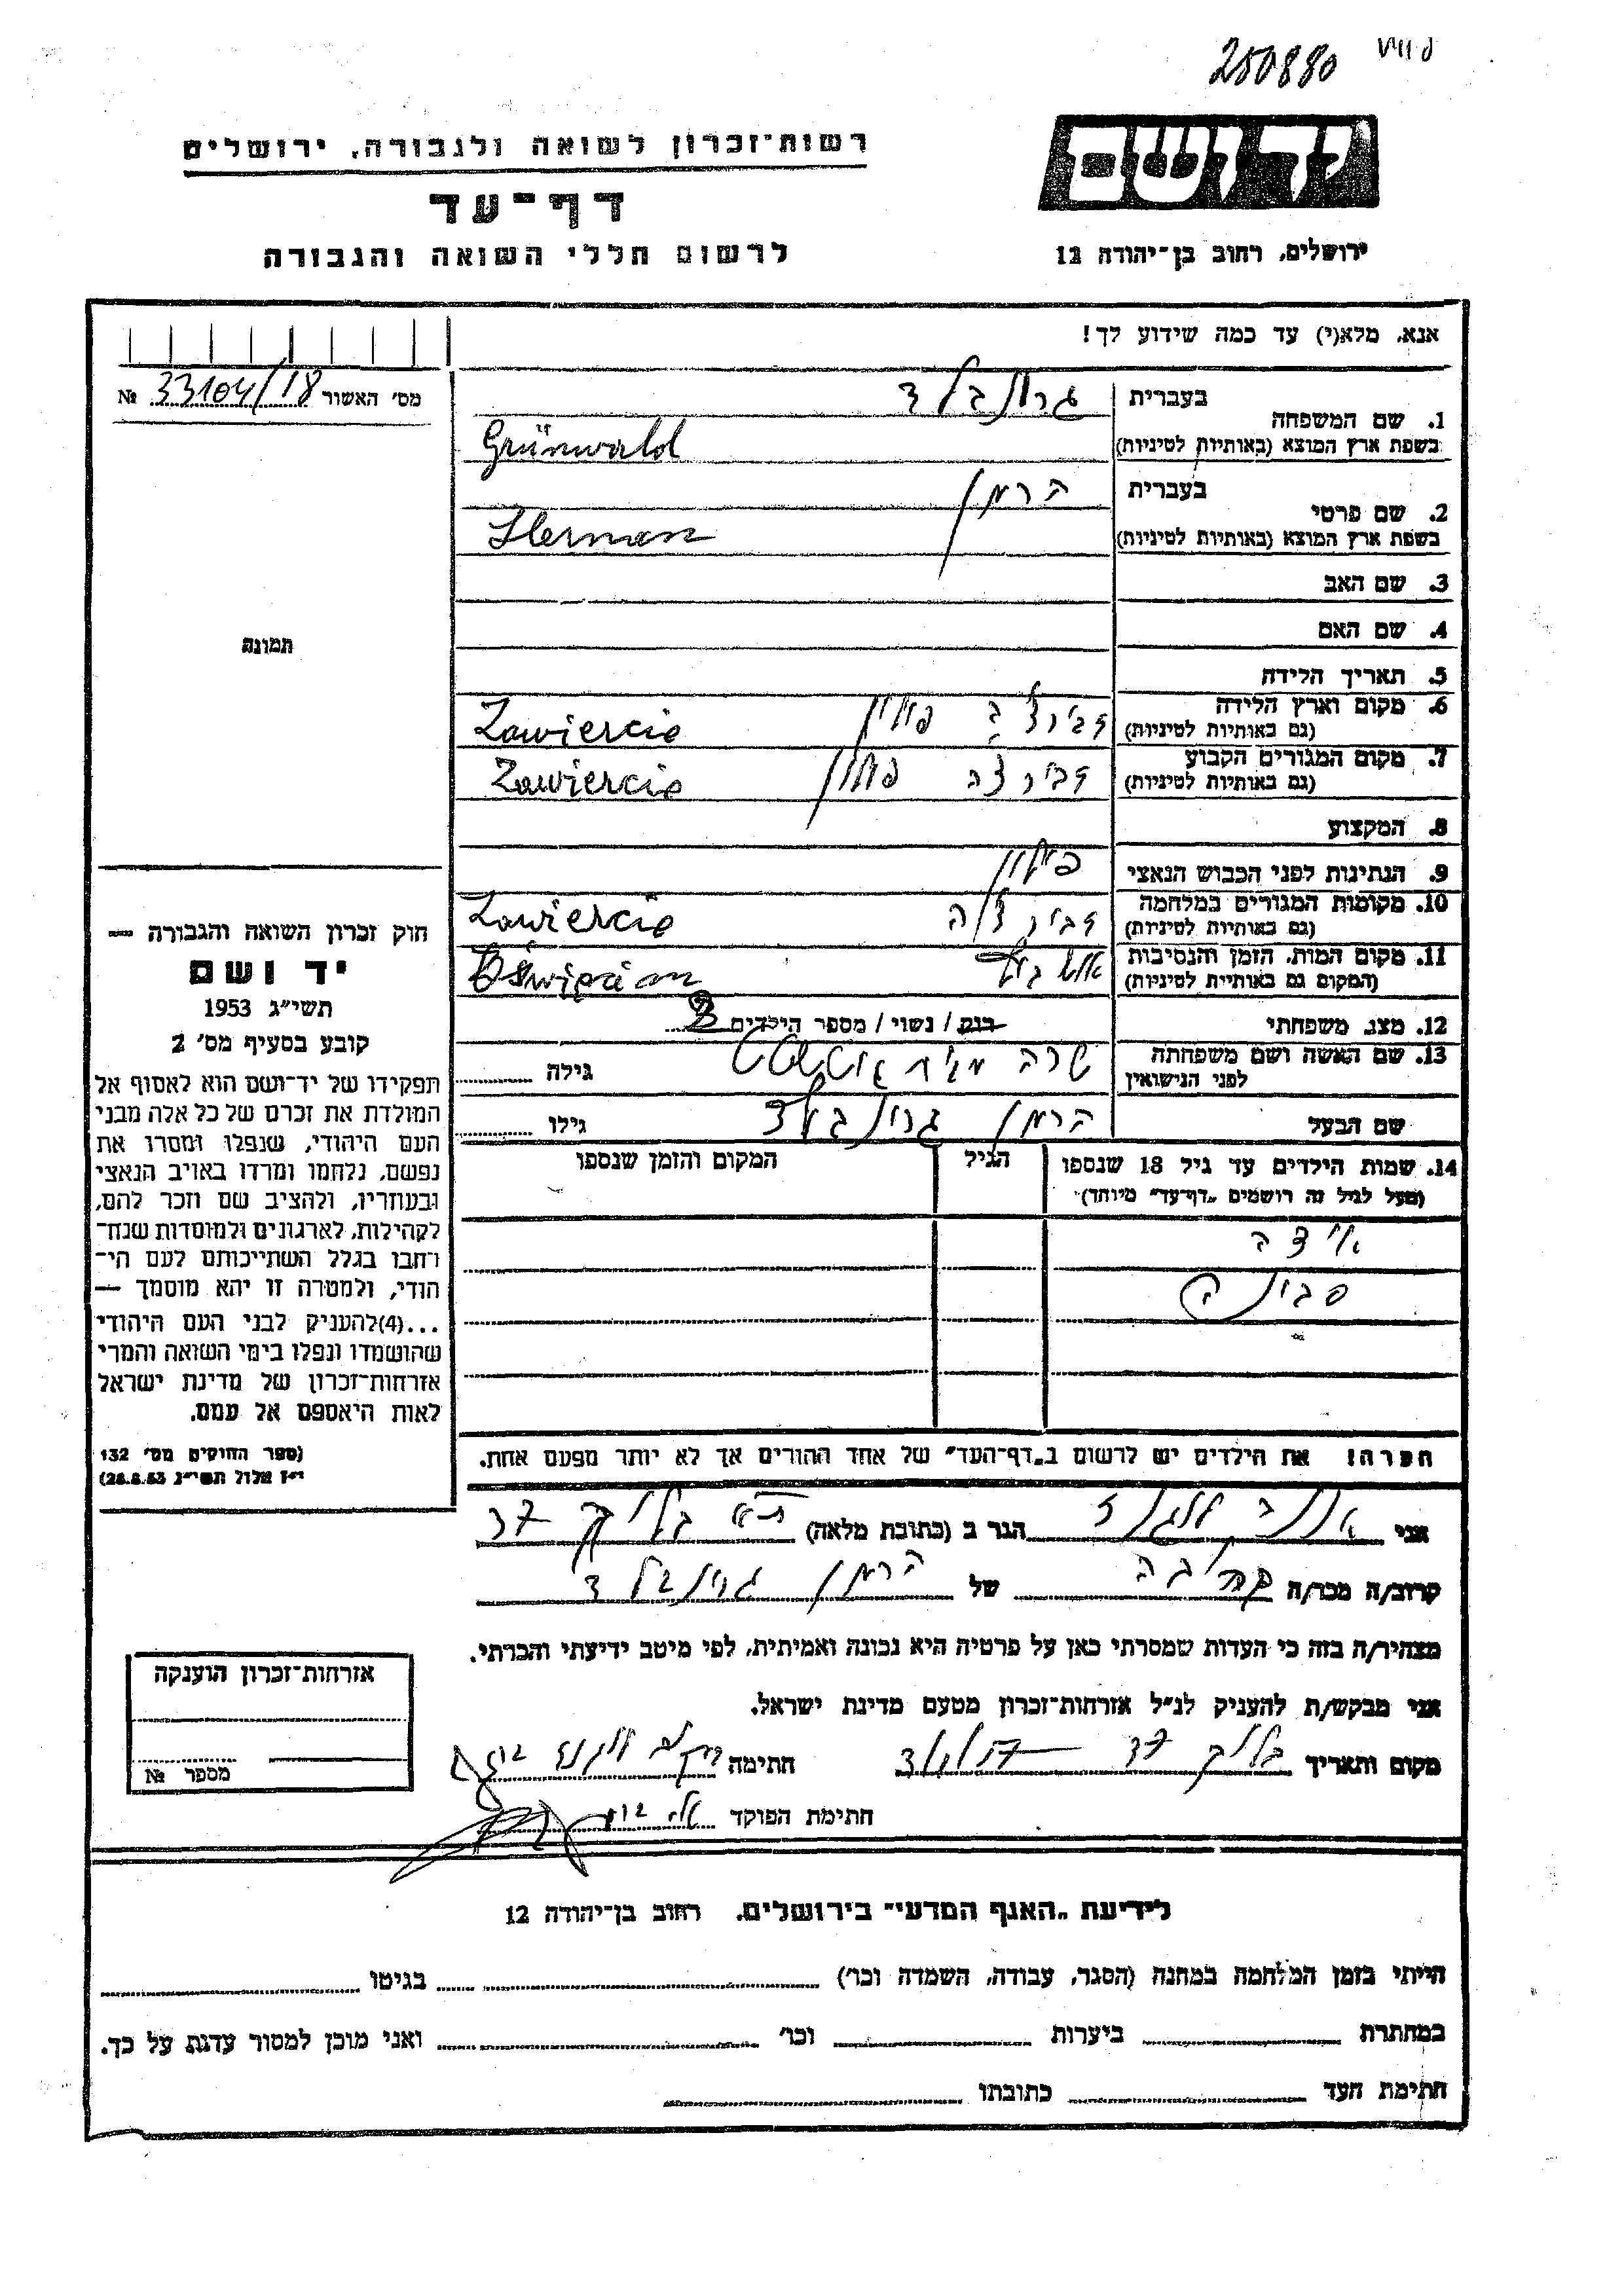 250880
יד ושם
ירושלים, רחוב בן־יהודה 12
רשות־זכרון לשואה ולגבורה, ירושלים
דף־עד
לרשום חללי השואה והגבורה
אנא, מלא(י) עד כמה שידוע לך!
מס׳ האשור 33104/18 №
1. שם המשפחה
בעברית גרונבלד
בשפת ארץ המוצא (באותיות לטיניות) Grünwald
2. שם פרטי
בעברית הרמן
בשפת ארץ המוצא (באותיות לטיניות) Herman
3. שם האב
4. שם האם
5. תאריך הלידה
6. מקום וארץ הלידה
(גם באותיות לטיניות) פולין Zawiercie
7. מקום המגורים הקבוע
(גם באותיות לטיניות) פולין Zawiercie
8. המקצוע
9. הנתינות לפני הכבוש הנאצי פולין
10. מקומות המגורים במלחמה
(גם באותיות לטיניות) Zawiercie
11. מקום המות, הזמן והנסיבות
(המקום גם באותיות לטיניות)
12. מצב משפחתי רווק / נשוי / מספר הילדים
13. שם האשה ושם משפחתה
לפני הנישואין שרה גילה
שם הבעל הרמן גרונבלד גילו
14. שמות הילדים עד גיל 18 שנספו
(מעל לגיל זה רושמים „דף־עד״ מיוחד)
הגיל
המקום והזמן שנספו
הערה! את הילדים יש לרשום ב„דף־העד״ של אחד ההורים אך לא יותר מפעם אחת.
תמונה
חוק זכרון השואה והגבורה —
יד ושם
תשי״ג 1953
קובע בסעיף מס׳ 2
תפקידו של יד־ושם הוא לאסוף אל
המולדת את זכרם של כל אלה מבני
העם היהודי, שנפלו ומסרו את
נפשם, נלחמו ומרדו באויב הנאצי
ובעוזריו, ולהציב שם וזכר להם,
לקהילות, לארגונים ולמוסדות שנח־
רחבו בגלל השתייכותם לעם הי־
הודי, ולמטרה זו יהא מוסמך —
...(4)להעניק לבני העם היהודי
שהושמדו ונפלו בימי השואה והמרי
אזרחות־זכרון של מדינת ישראל
לאות היאספם אל עמם.
(ספר החוקים מס׳ 132
י״ז אלול תשי״ג 28.8.53)
אני הגר ב (כתובת מלאה) 37
קרוב/ה מכר/ה קרובה של הרמן גרונבלד
מצהיר/ה בזה כי העדות שמסרתי כאן על פרטיה היא נכונה ואמיתית, לפי מיטב ידיעתי והכרתי.
אני מבקש/ת להעניק לנ״ל אזרחות־זכרון מטעם מדינת ישראל.
מקום ותאריך 37 חתימה
חתימת הפוקד
אזרחות־זכרון הוענקה
מספר №
לידיעת „האגף המדעי״ בירושלים, רחוב בן־יהודה 12
הייתי בזמן המלחמה במחנה (הסגר, עבודה, השמדה וכו׳) בגיטו
במחתרת ביערות וכו׳ ואני מוכן למסור עדות על כך.
חתימת העד כתובתו